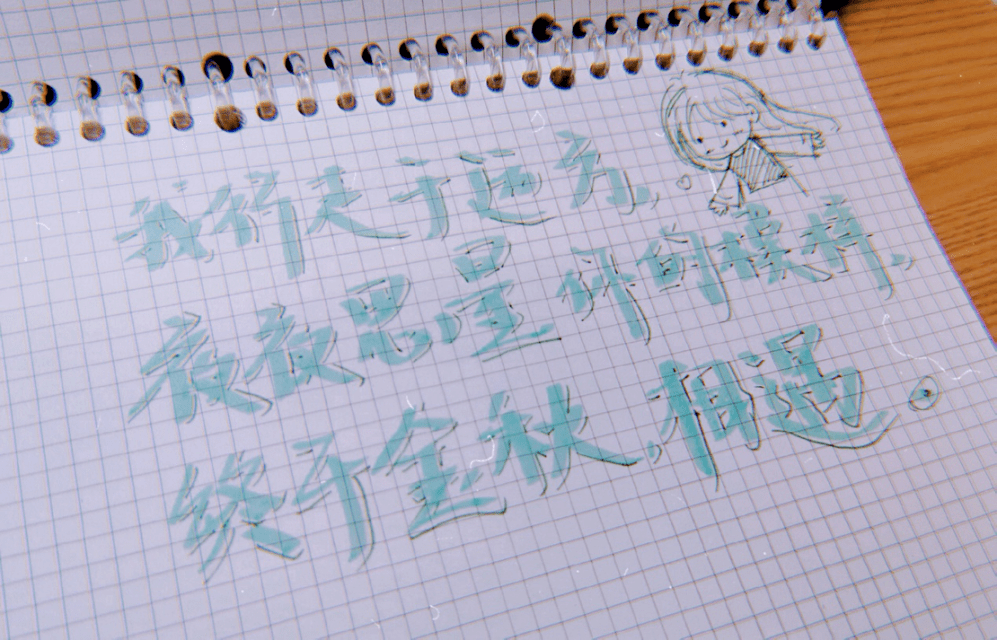 我行走于远方,
夜夜思量 的模样,
终于金秋,相遇。